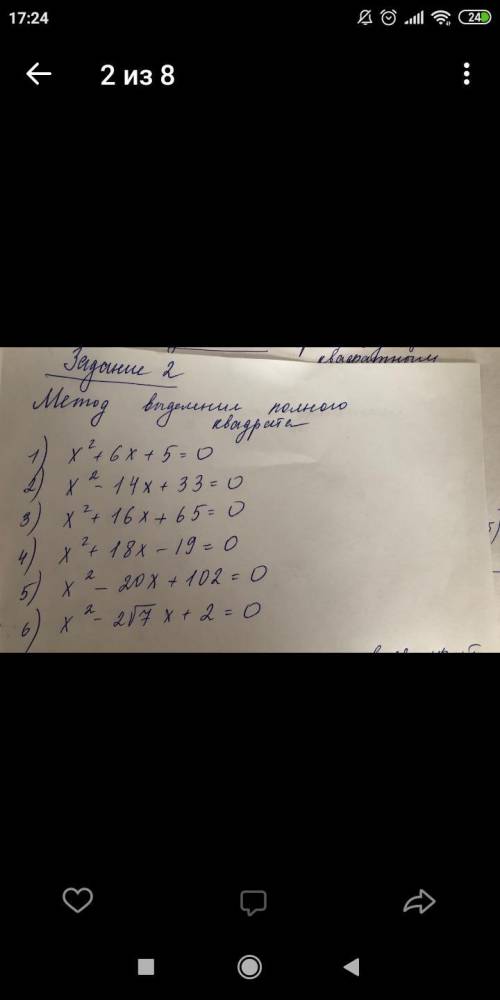 17:24
24
2 из 8
квадратным
Задание 2
Метод выделения полного
квадрата
1) x² + 6x + 5 = 0
2) x² - 14x + 33 = 0
3) x² + 16x + 65 = 0
4) x² + 18x - 19 = 0
5) x² - 20x + 102 = 0
6) x² - 2√7 x + 2 = 0